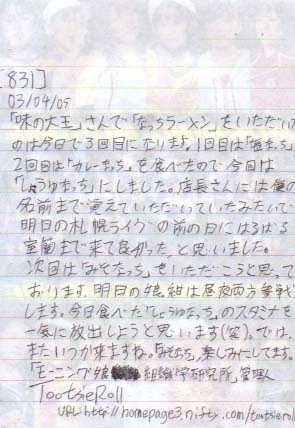 [831]
03/04/05
「味の大王」さんで「なっちラーメン」をいただい
のは今日で3回目になります。1回目は「塩なっち」
2回目は「カレーなっち」を食べたので今回は
「しょうゆなっち」にしました。店長さんには俺の
名前まで覚えていただいていたみたいで
明日の札幌ライヴの前の日にはるばる
室蘭まで来て良かった、と思いました。
次回は「みそなっち」をいただこうと思って
おります。明日の娘。紺は昼夜両方参戦
します。今日食べた「しょうゆなっち」のスタミナを
一気に放出しようと思います(笑)。では、
またいつか来ますね。「みそなっち」楽しみにしてます。
「モーニング娘 組織学研究所」管理人
TootsieRoll
URL:http://homepage3.nifty.com/tootsierol